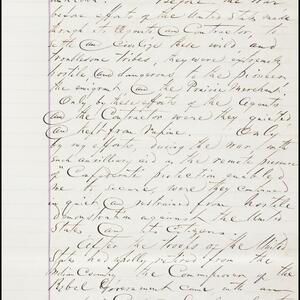 Before the War
before efforts of the United States made
through its Agents and Contractor, to
settle and civilize these wild and
troublesome tribes, they were extremely
hostile and dangerous to the pioneer,
the emigrant and the Prairie Merchant.
Only by these efforts of the Agents
and the Contractor were they quieted
and kept from rapine. Only
by my efforts, during the war, with
such auxilliary aid as the remote presence
of "Confederate" protection enabled
me to secure, were they continued
in quiet and restrained from hostile
demonstration against the United
States and its Citizens.
After the troops of the United
States had wholly retired from the
Indian Country, the Commissioner of the
Rebel Government came with an